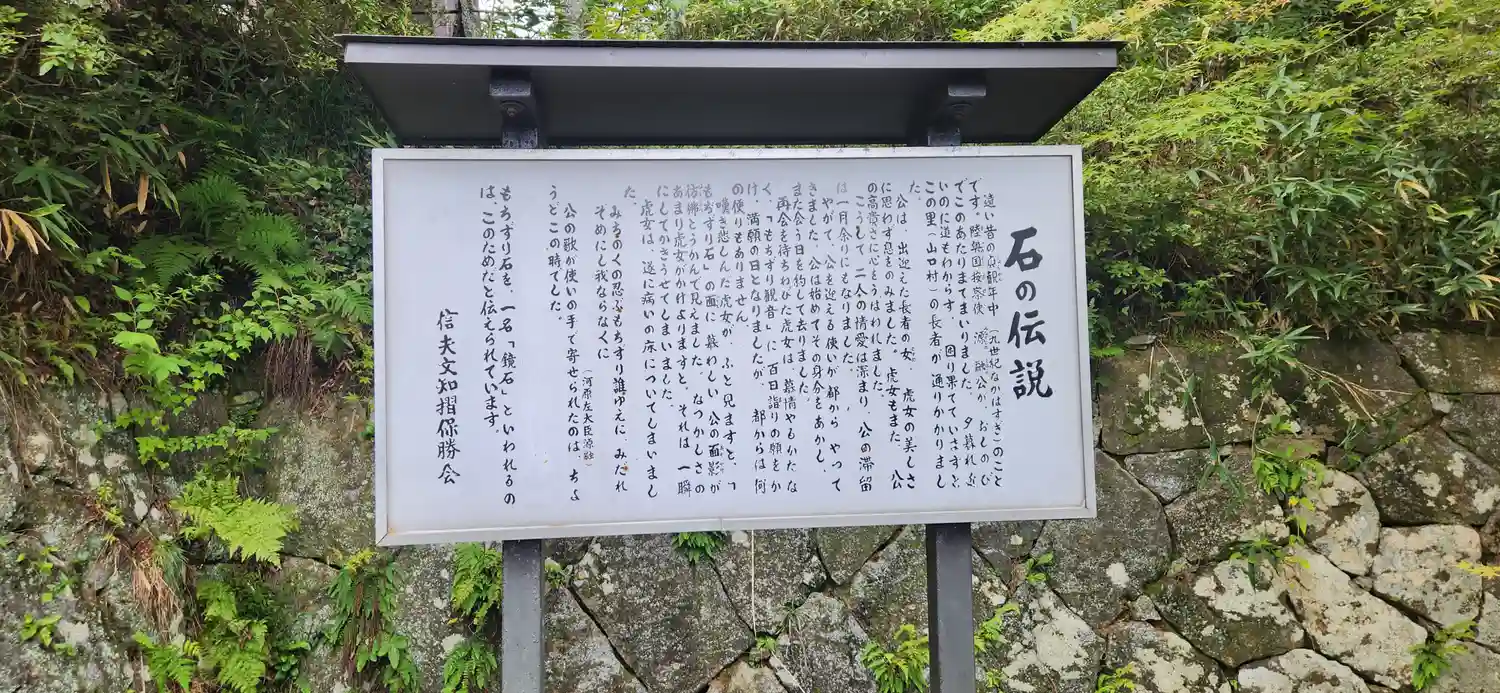 石の伝説
遠い昔の貞観年中(九世紀なかばすぎ)のこと
です。陸奥国按察使 源融公が、おしのび
でこのあたりまでまいりました。夕暮れ近
いのに道もわからず、困り果てていますと、
この里(山口村)の長者が通りかかりまし
た。
公は、出迎えた長者の女、虎女の美しさ
に思わず息をのみました。虎女もまた、公
の高貴さに心をうばわれました。
こうして、二人の情愛は深まり、公の滞留
は一月余りにもなりました。
やがて、公を迎える使いが都から やって
きました。公は始めてその身分をあかし、
また会う日を約して去りました。
再会を待ちわびた虎女は、慕情やるかたな
く、「もちずり観音」に百日詣りの願をか
け、満願の日となりましたが、都からは何
の便りもありません。
嘆き悲しんだ虎女が、ふと見ますと、「
もちずり石」の面に、慕わしい公の面影が
彷彿とうかんで見えました。なつかしさの
あまり虎女がかけよりますと、それは一瞬
にしてかきうせてしまいました。
虎女は、遂に病いの床についてしまいまし
た。
みちのくの忍ぶもちずり誰ゆえに、みだれ
そめにし我ならなくに
(河原左大臣源融)
公の歌が使いの手で寄せられたのは、ちょ
うどこの時でした。
もちずり石を、一名「鏡石」といわれるの
は、このためだと伝えられています。
信夫文知摺保勝会